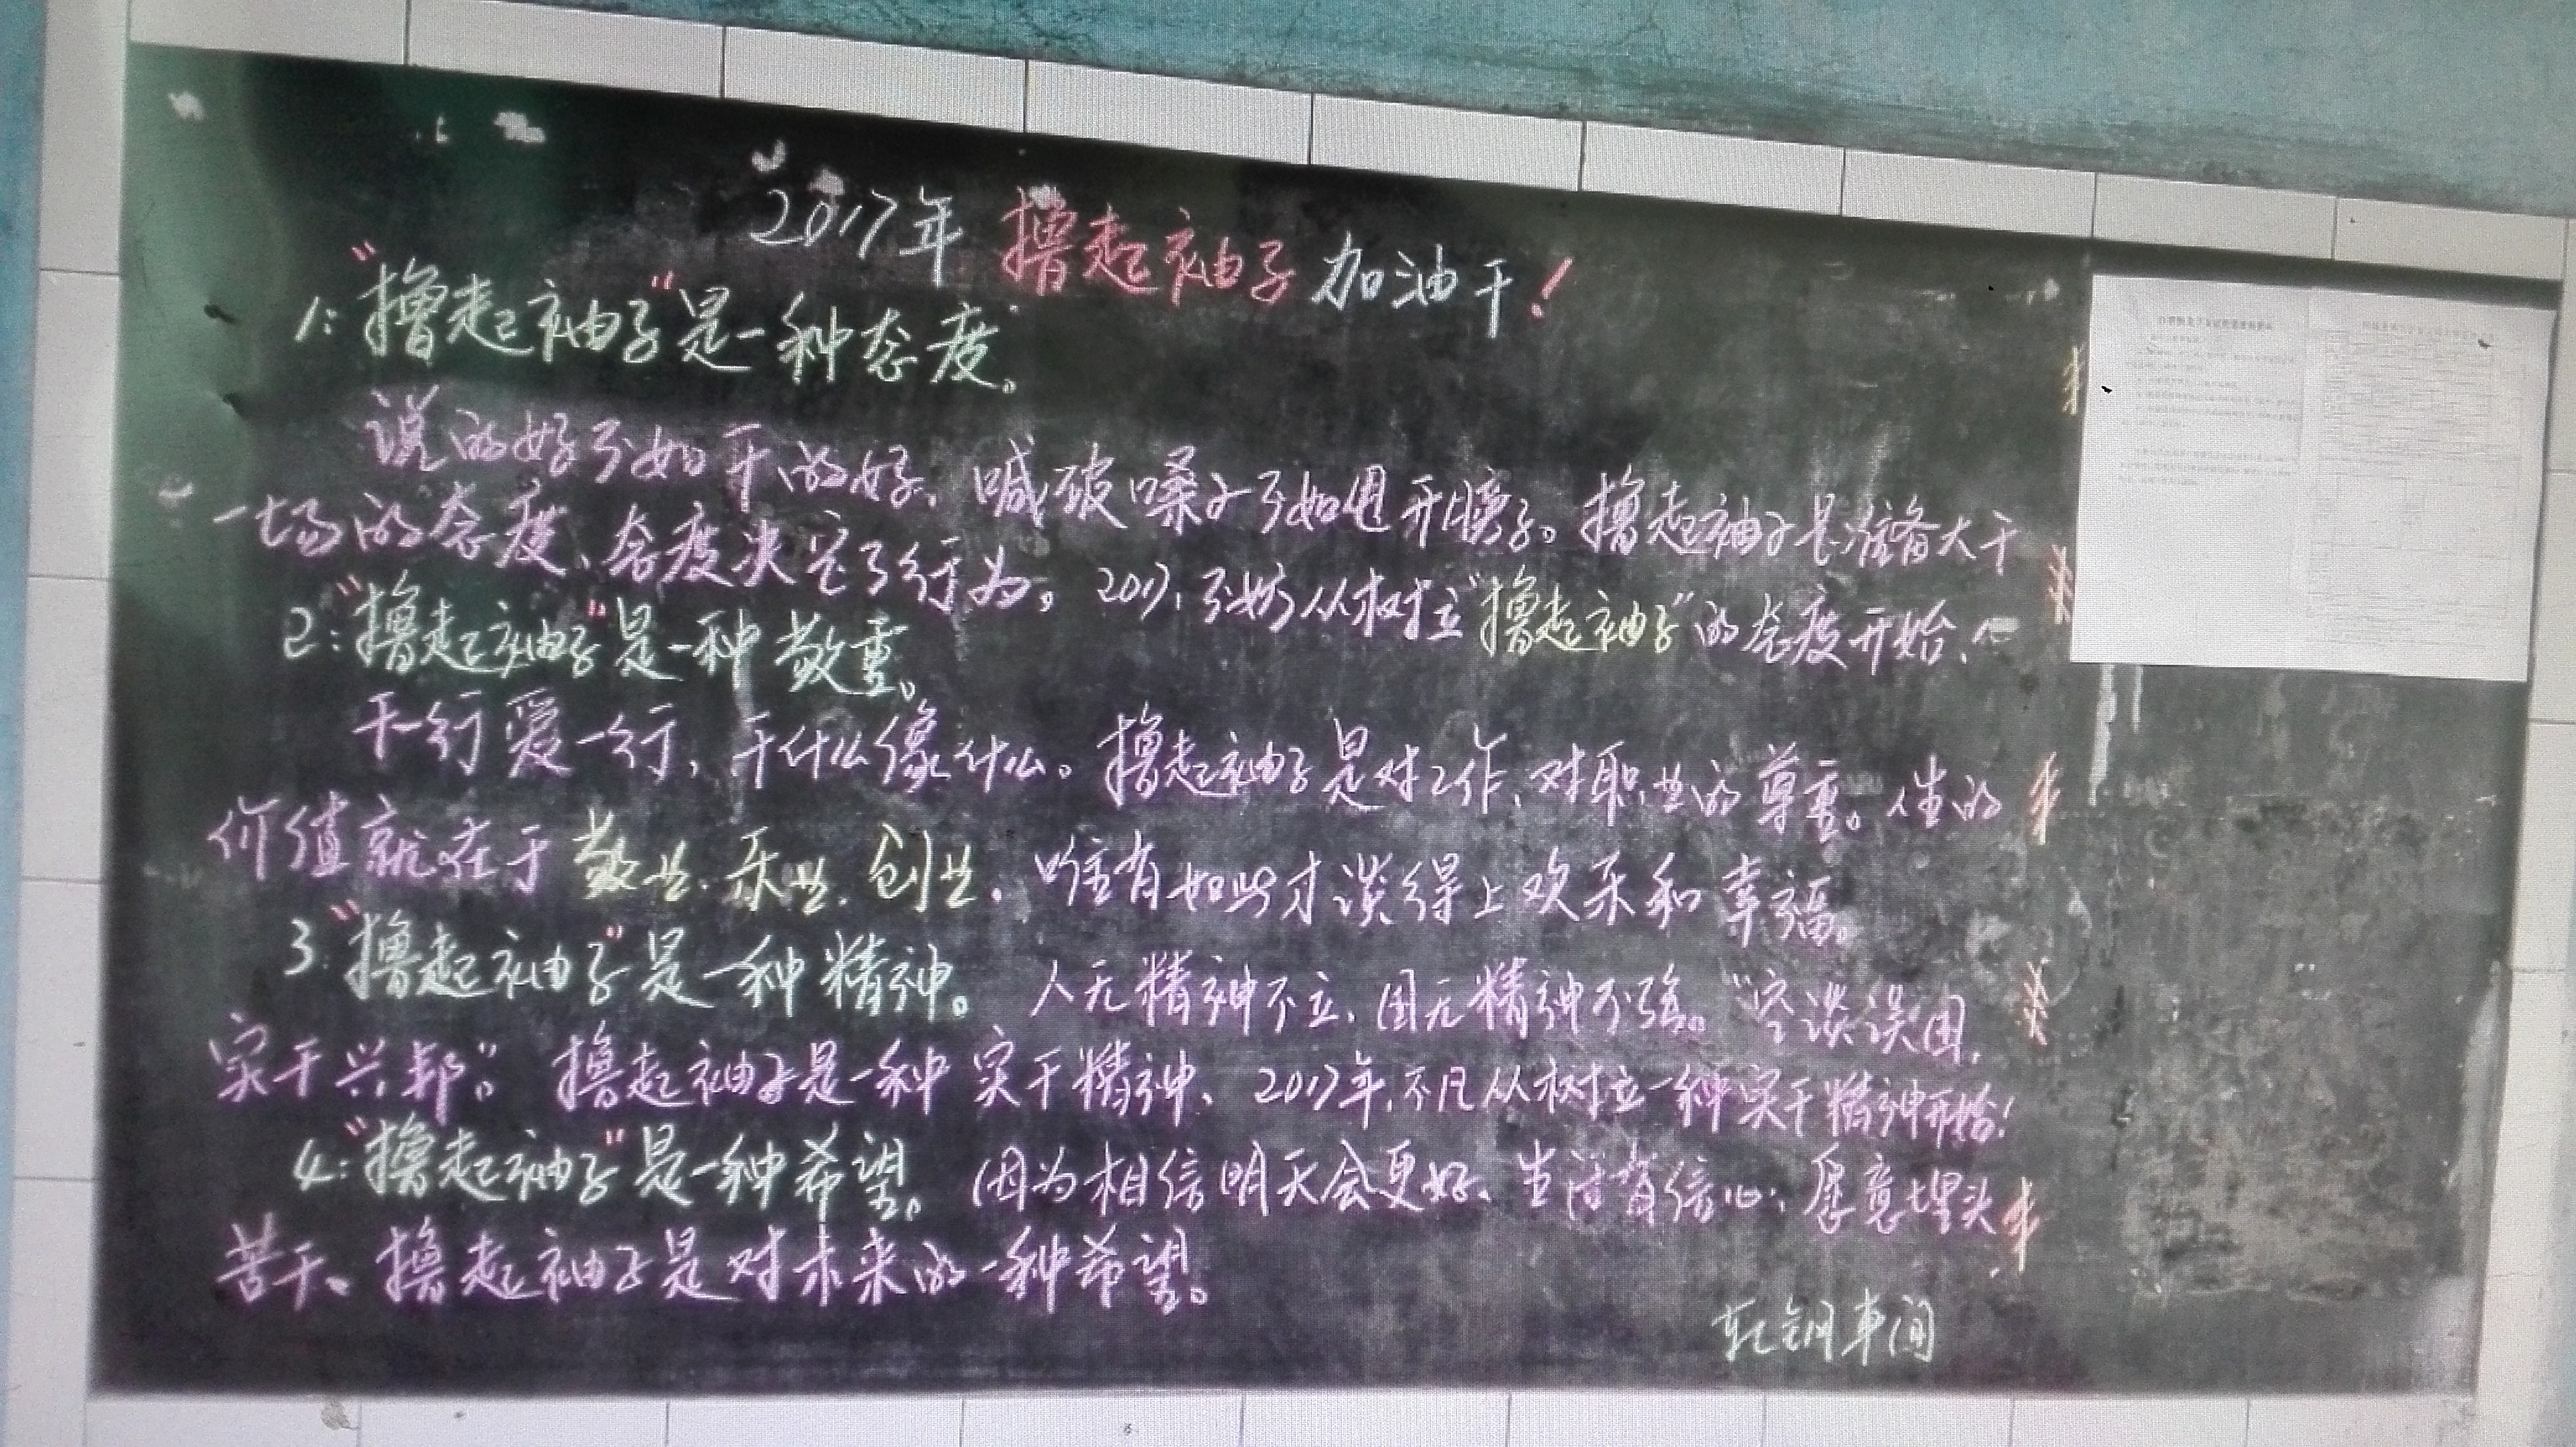 2017年 撸起袖子 加油干！
1:“撸起袖子”是一种态度。
说的好不如干的好，喊破嗓子不如甩开膀子。撸起袖子是准备大干
一场的态度，态度决定了行为。2017，不妨从树立“撸起袖子”的态度开始，
2:“撸起袖子”是一种敬重。
干一行爱一行，干什么像什么。撸起袖子是对工作、对职业的尊重。人生的
价值就在于敬业、乐业、创业，唯有如此才谈得上欢乐和幸福。
3:“撸起袖子”是一种精神。人无精神不立，国无精神不强。“空谈误国，
实干兴邦”。撸起袖子是一种实干精神、2017年，不凡从树立一种实干精神开始！
4:“撸起袖子”是一种希望。因为相信明天会更好、生活有信心，愿意埋头
苦干、撸起袖子是对未来的一种希望。
轧钢车间